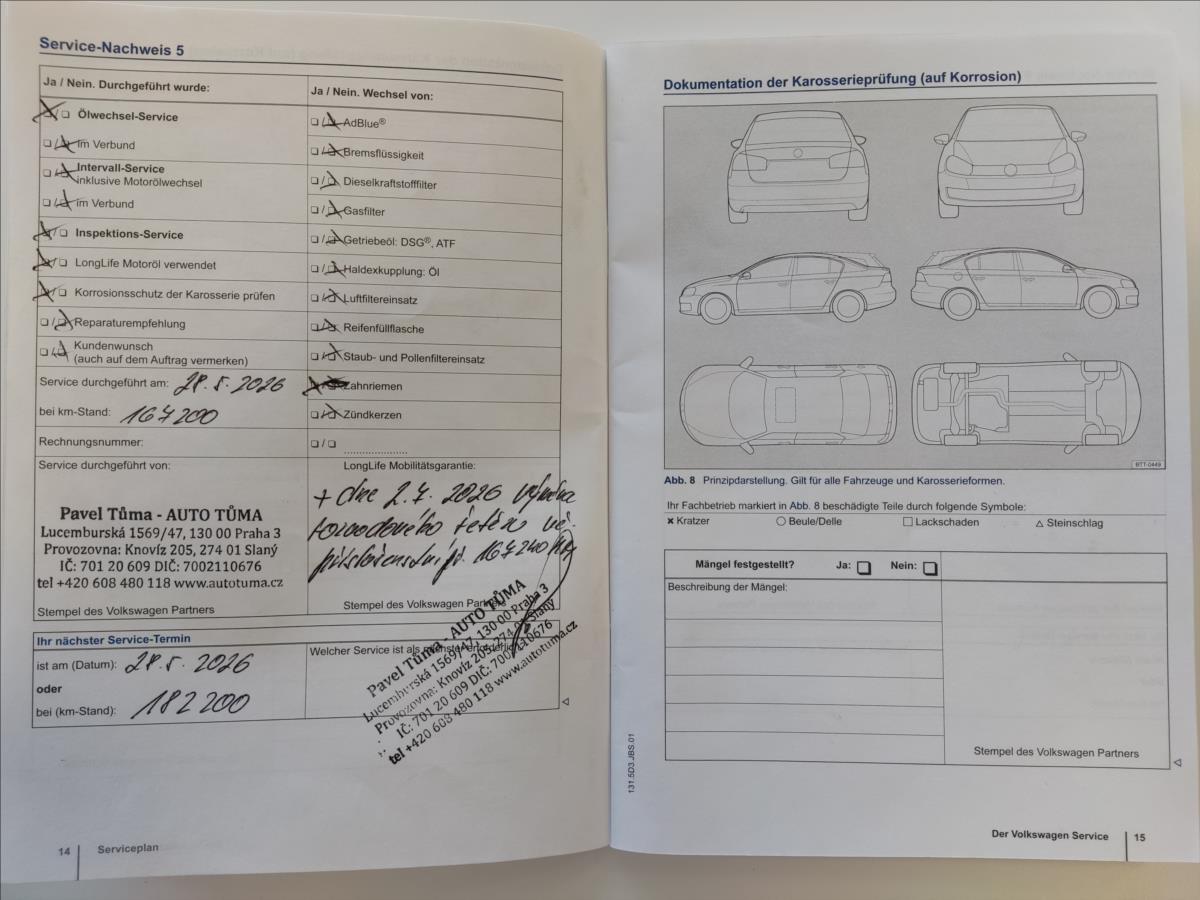 Service-Nachweis 5
Ja / Nein. Durchgeführt wurde:
Ölwechsel-Service
im Verbund
Intervall-Service
inklusive Motorölwechsel
im Verbund
Inspektions-Service
LongLife Motoröl verwendet
Korrosionsschutz der Karosserie prüfen
Reparaturempfehlung
Kundenwunsch
(auch auf dem Auftrag vermerken)
Service durchgeführt am: 28.5.2026
bei km-Stand: 167200
Rechnungsnummer:
Service durchgeführt von:
Pavel Tůma - AUTO TŮMA
Lucemburská 1569/47, 130 00 Praha 3
Provozovna: Knovíz 205, 274 01 Slaný
IČ: 701 20 609 DIČ: 7002110676
tel +420 608 480 118 www.autotuma.cz
Stempel des Volkswagen Partners
Ja / Nein. Wechsel von:
AdBlue®
Bremsflüssigkeit
Dieselkraftstofffilter
Gasfilter
Getriebeöl: DSG®, ATF
Haldexkupplung: Öl
Luftfiltereinsatz
Reifenfüllflasche
Staub- und Pollenfiltereinsatz
Zahnriemen
Zündkerzen
LongLife Mobilitätsgarantie:
+ dne 2.7.2026 výměna
rozvodového řetězu vč.
příslušenství př. 167240 km
Stempel des Volkswagen Partners
Ihr nächster Service-Termin
ist am (Datum): 28.5.2026
oder
bei (km-Stand): 182200
Welcher Service ist als
Pavel Tůma - AUTO TŮMA
Lucemburská 1569/47, 130 00 Praha 3
Provozovna: Knovíz 205, 274 01 Slaný
IČ: 701 20 609 DIČ: 7002110676
tel +420 608 480 118 www.autotuma.cz
14 Serviceplan
Dokumentation der Karosserieprüfung (auf Korrosion)
BTT-0449
Abb. 8 Prinzipdarstellung. Gilt für alle Fahrzeuge und Karosserieformen.
Ihr Fachbetrieb markiert in Abb. 8 beschädigte Teile durch folgende Symbole:
Kratzer Beule/Delle Lackschaden Steinschlag
Mängel festgestellt? Ja: Nein:
Beschreibung der Mängel:
Stempel des Volkswagen Partners
131.5D3.JBS.01
Der Volkswagen Service 15